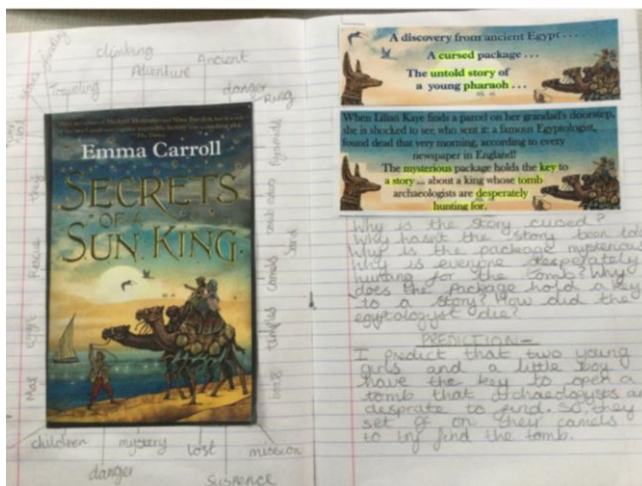 climbing
Ancient
Adventure
Travelling
danger
King
Pyramids
Sand
camels
temples
Rescue
Egypt
Map
Emma Carroll
SECRETS
OF A
SUN KING
children
mystery
lost
mission
danger
suspence
A discovery from ancient Egypt . . .
A cursed package . . .
The untold story of
a young pharaoh . . .
When Lilian Kaye finds a parcel on her grandad's doorstep,
she is shocked to see who sent it: a famous Egyptologist,
found dead that very morning, according to every
newspaper in England!
The mysterious package holds the key to
a story... about a king whose tomb
archaeologists are desperately
hunting for.
Why is the story cursed?
Why hasn't the story been told
Why is the package mysterious
Why is everyone desperately
hunting for the tomb? Why
does the package hold a key
to a story? How did the
egytologyst die?
PREDICTION-
I predict that two young
girls and a little boy
have the key to open a
tomb that archaeologysts are
desprate to find. So they
set of on their camels
to try find the tomb.